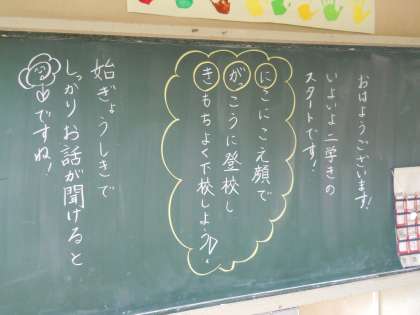 おはようございます!
いよいよ二学きの
スタートです!
にこにこえ顔で
がっこうに登校し
きもちよく下校しよう!
始ぎょうしきで
しっかりお話が聞けると
ですね!